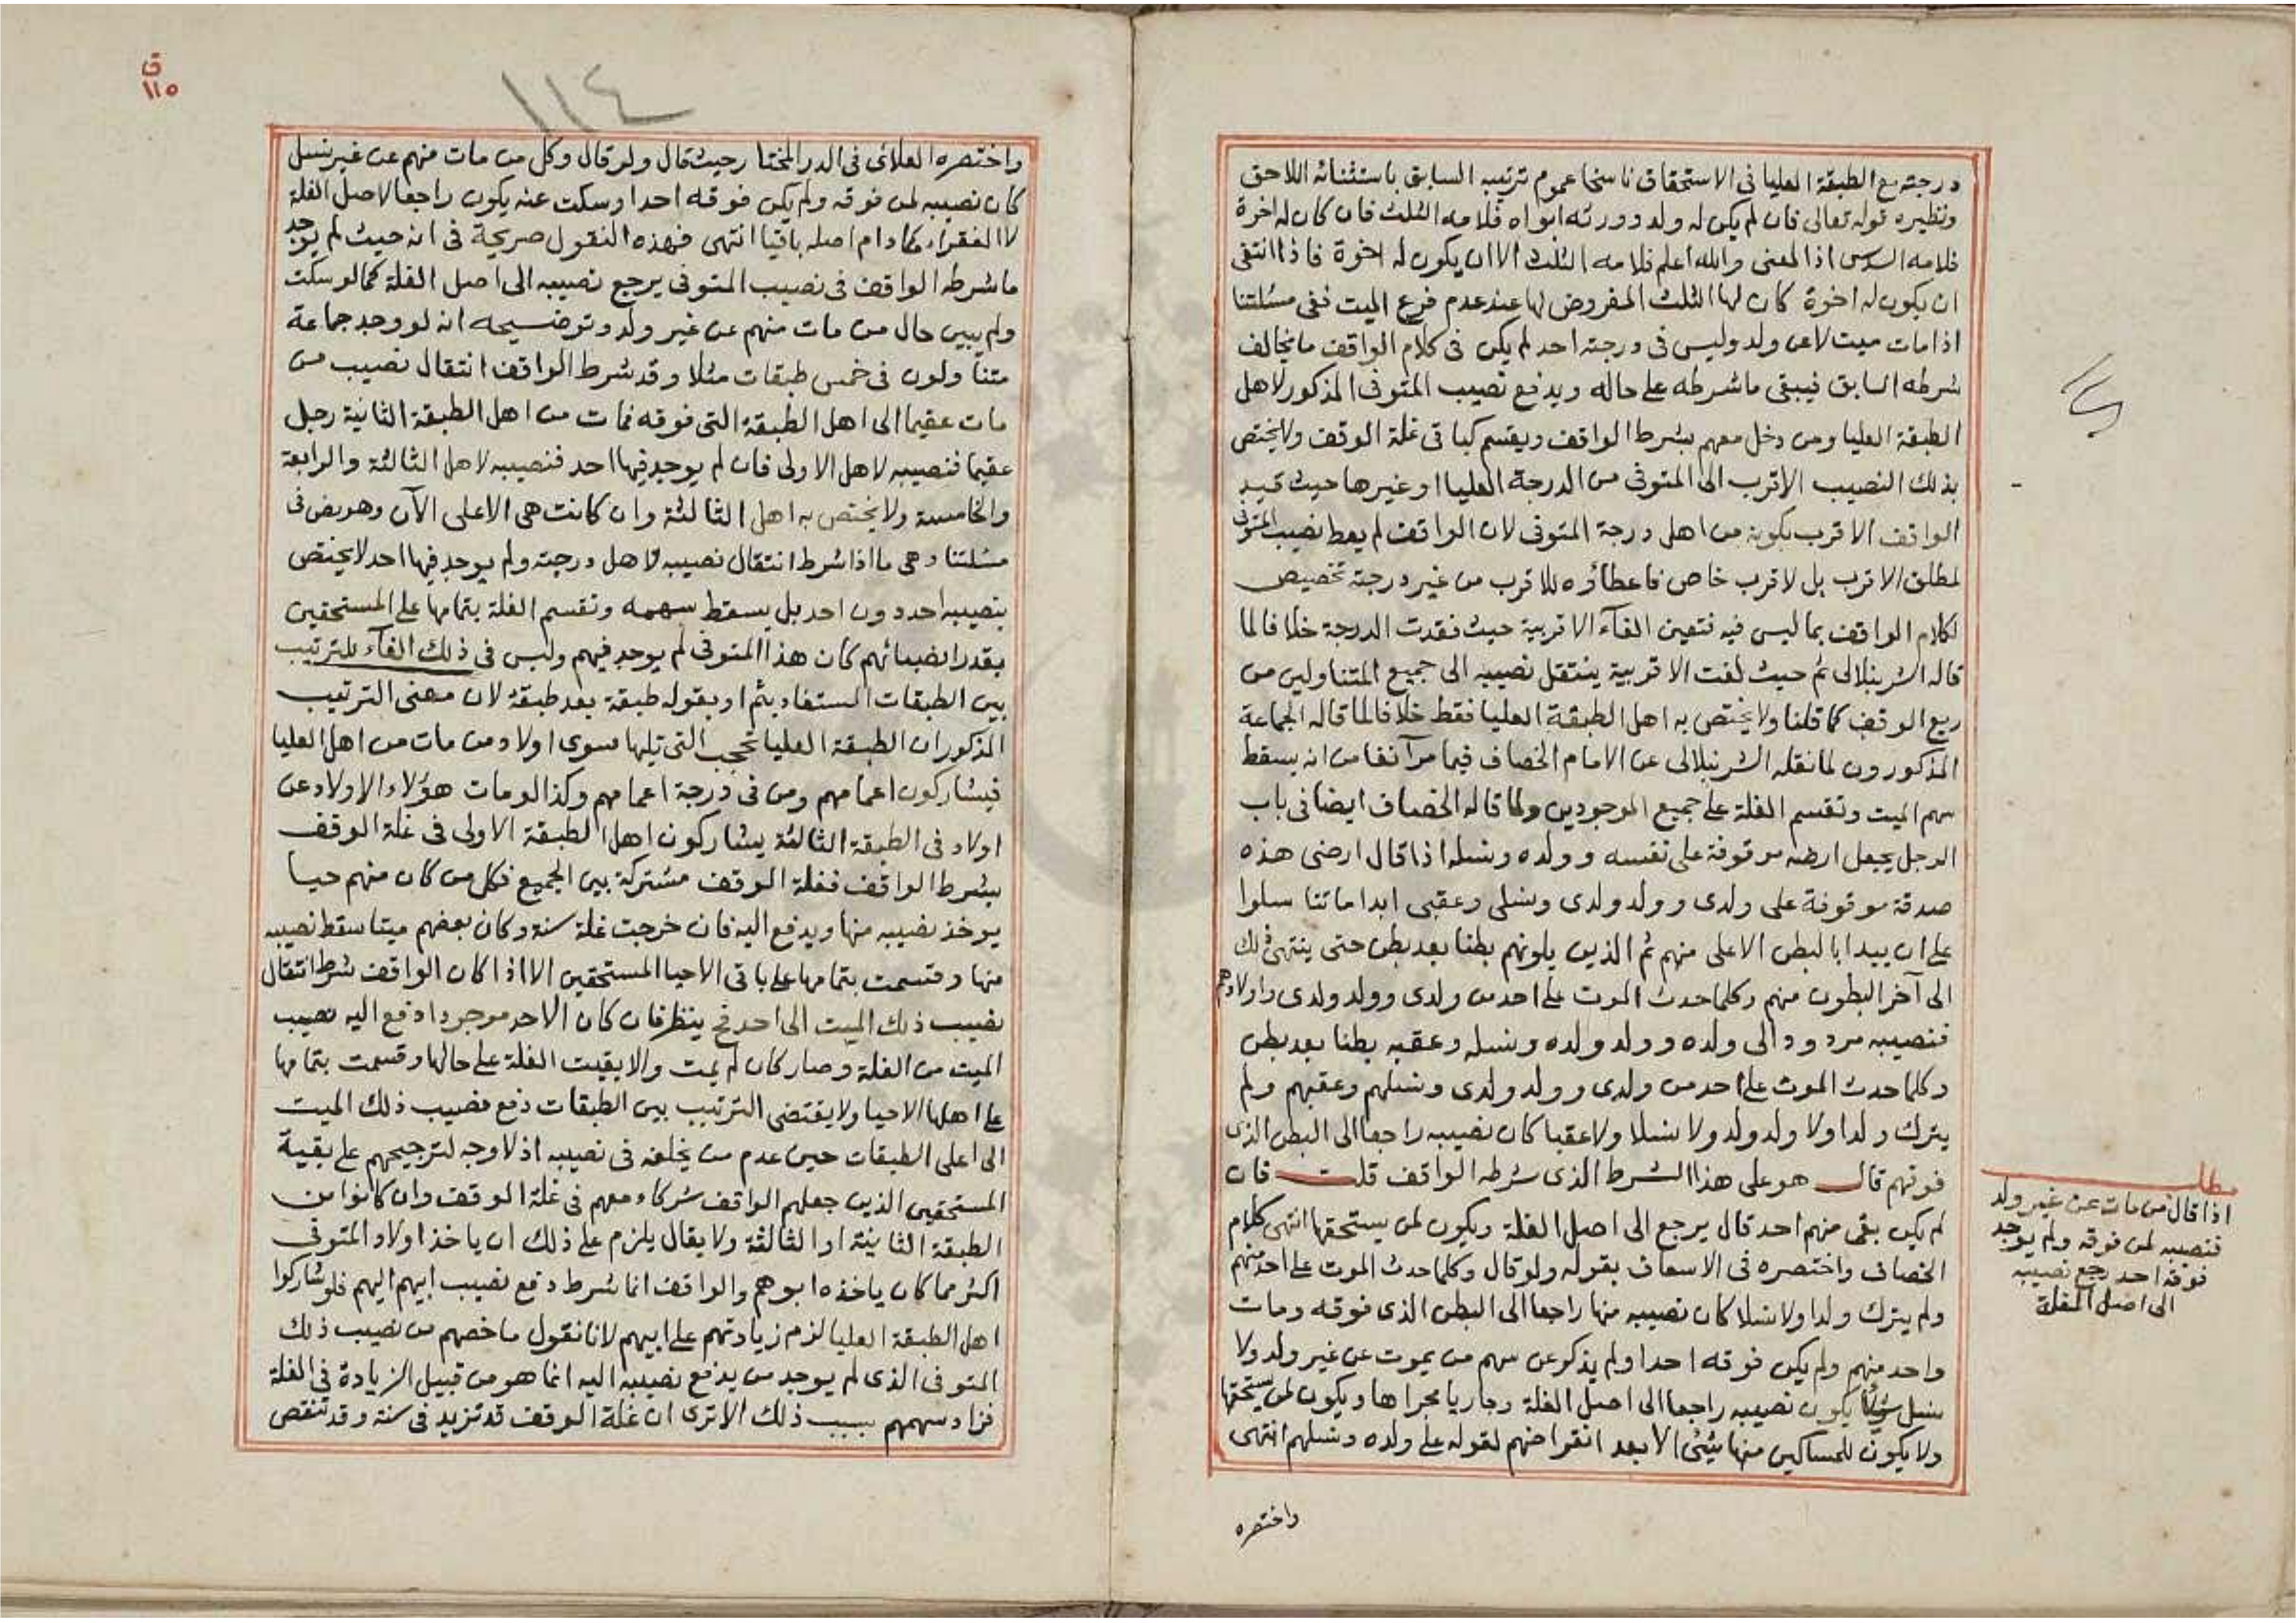 درجته مع الطبقة العليا فى الاستحقاق ناسخا عموم ترتيبه السابق باستثنائه اللاحق
ونظيره قوله تعالى فان لم يكن له ولد وورثه ابواه فلامه الثلث فان كان له اخوة
فلامه السدس اذ المعنى والله اعلم فلامه الثلث الا ان يكون له اخوة فاذا انتفى
ان يكون له اخوة كان لها الثلث المفروض لها عند عدم فرع الميت ففى مسئلتنا
اذا مات ميت لا عن ولد وليس فى درجته احد لم يكن فى كلام الواقف ما يخالف
شرطه السابق فيبقى ما شرطه على حاله ويدفع نصيب المتوفى المذكور لاهل
الطبقة العليا ومن دخل معهم بشرط الواقف ويقسم كباقى غلة الوقف ولا يختص
بذلك النصيب الاقرب الى المتوفى من الدرجة العليا او غيرها حيث قيد
الواقف الاقرب بكونه من اهل درجة المتوفى لان الواقف لم يعط نصيب المتوفى
لمطلق الاقرب بل لاقرب خاص فاعطاؤه للاقرب من غير درجته تخصيص
لكلام الواقف بما ليس فيه فتعين الغآء الاقربية حيث فقدت الدرجة خلافا لما
قاله الشرنبلالى ثم حيث لغت الاقربية ينتقل نصيبه الى جميع المتناولين من
ريع الوقف كما قلنا ولا يختص به اهل الطبقة العليا فقط خلافا لما قاله الجماعة
المذكورون لما نقله الشرنبلالى عن الامام الخصاف فيما مر آنفا من انه يسقط
سهم الميت وتقسم الغلة على جميع الموجودين ولما قاله الخصاف ايضا فى باب
الرجل يجعل ارضه موقوفة على نفسه وولده ونسله اذا قال ارضى هذه
صدقة موقوفة على ولدى وولد ولدى ونسلى وعقبى ابدا ما تناسلوا
على ان يبدا بالبطن الاعلى منهم ثم الذين يلونهم بطنا بعد بطن حتى ينتهى ذلك
الى آخر البطون منهم وكلما حدث الموت على احد من ولدى وولد ولدى واولادهم
فنصيبه مردود الى ولده وولد ولده ونسله وعقبه بطنا بعد بطن
وكلما حدث الموت على احد من ولدى وولد ولدى ونسلهم وعقبهم ولم
يترك ولدا ولا ولد ولد ولا نسلا ولا عقبا كان نصيبه راجعا الى البطن الذى
فوقهم قال هو على هذا الشرط الذى شرطه الواقف قلت فان
لم يكن بقى منهم احد قال يرجع الى اصل الغلة ويكون لمن يستحقها انتهى كلام
الخصاف واختصره فى الاسعاف بقوله ولو قال وكلما حدث الموت على احد منهم
ولم يترك ولدا ولا نسلا كان نصيبه منها راجعا الى البطن الذى فوقه ومات
واحد منهم ولم يكن فوقه احد او لم يذكر عن سهم من يموت عن غير ولد ولا
نسل شيئا يكون نصيبه راجعا الى اصل الغلة وجاريا مجراها ويكون لمن يستحقها
ولا يكون للمساكين منها شئ الا بعد انقراضهم لقوله على ولده ونسلهم انتهى
واختصره
مطلب
اذا قال من مات عن غير ولد
فنصيبه لمن فوقه ولم يوجد
فوقه احد رجع نصيبه
الى اصل الغلة
ق
١١٥
١١٤
واختصره العلائى فى الدر المختار حيث قال ولو قال وكل من مات منهم عن غير نسل
كان نصيبه لمن فوقه ولم يكن فوقه احد او سكت عنه يكون راجعا لاصل الغلة
لا للفقراء ما دام اصله باقيا انتهى فهذه النقول صريحة فى انه حيث لم يوجد
ما شرطه الواقف فى نصيب المتوفى يرجع نصيبه الى اصل الغلة كما لو سكت
ولم يبين حال من مات منهم عن غير ولد وتوضيحه انه لو وجد جماعة
متناولون فى خمس طبقات مثلا وقد شرط الواقف انتقال نصيب من
مات عقيما الى اهل الطبقة التى فوقه فمات من اهل الطبقة الثانية رجل
عقيما فنصيبه لاهل الاولى فان لم يوجد فيها احد فنصيبه لاهل الثالثة والرابعة
والخامسة ولا يختص به اهل الثالثة وان كانت هى الاعلى الآن وهو نص فى
مسئلتنا وهى ما اذا شرط انتقال نصيبه لاهل درجته ولم يوجد فيها احد لا يختص
بنصيبه احد دون احد بل يسقط سهمه وتقسم الغلة بتمامها على المستحقين
بقدر انصبائهم كان هذا المتوفى لم يوجد فيهم وليس فى ذلك الغآء للترتيب
بين الطبقات المستفاد بثم او بقوله طبقة بعد طبقة لان معنى الترتيب
المذكور ان الطبقة العليا تحجب التى تليها سوى اولاد من مات من اهل العليا
فيشاركون اعمامهم ومن فى درجة اعمامهم وكذا لو مات هؤلاء الاولاد عن
اولاد فى الطبقة الثالثة يشاركون اهل الطبقة الاولى فى غلة الوقف
بشرط الواقف فغلة الوقف مشتركة بين الجميع فكل من كان منهم حيا
يوخذ نصيبه منها ويدفع اليه فان خرجت غلة سنة وكان بعضهم ميتا سقط نصيبه
منها وقسمت بتمامها على باقى الاحيا المستحقين الا اذا كان الواقف شرط انتقال
نصيب ذلك الميت الى احد فح ينظر فان كان الاحد موجودا دفع اليه نصيب
الميت من الغلة وصار كان لم يمت والا بقيت الغلة على حالها وقسمت بتمامها
على اهلها الاحيا ولا يقتضى الترتيب بين الطبقات دفع نصيب ذلك الميت
الى اعلى الطبقات حين عدم من يخلفه فى نصيبه اذ لا وجه لترجيحهم على بقية
المستحقين الذين جعلهم الواقف شركاء معهم فى غلة الوقف وان كانوا من
الطبقة الثانية او الثالثة ولا يقال يلزم على ذلك ان ياخذ اولاد المتوفى
اكثر مما كان ياخذه ابوهم والواقف انما شرط دفع نصيب ابيهم اليهم فلو شاركوا
اهل الطبقة العليا لزم زيادتهم على ابيهم لانا نقول ما خصهم من نصيب ذلك
المتوفى الذى لم يوجد من يدفع نصيبه اليه انما هو من قبيل الزيادة فى الغلة
فزاد سهمهم بسبب ذلك الا ترى ان غلة الوقف قد تزيد فى سنة وقد تنقص